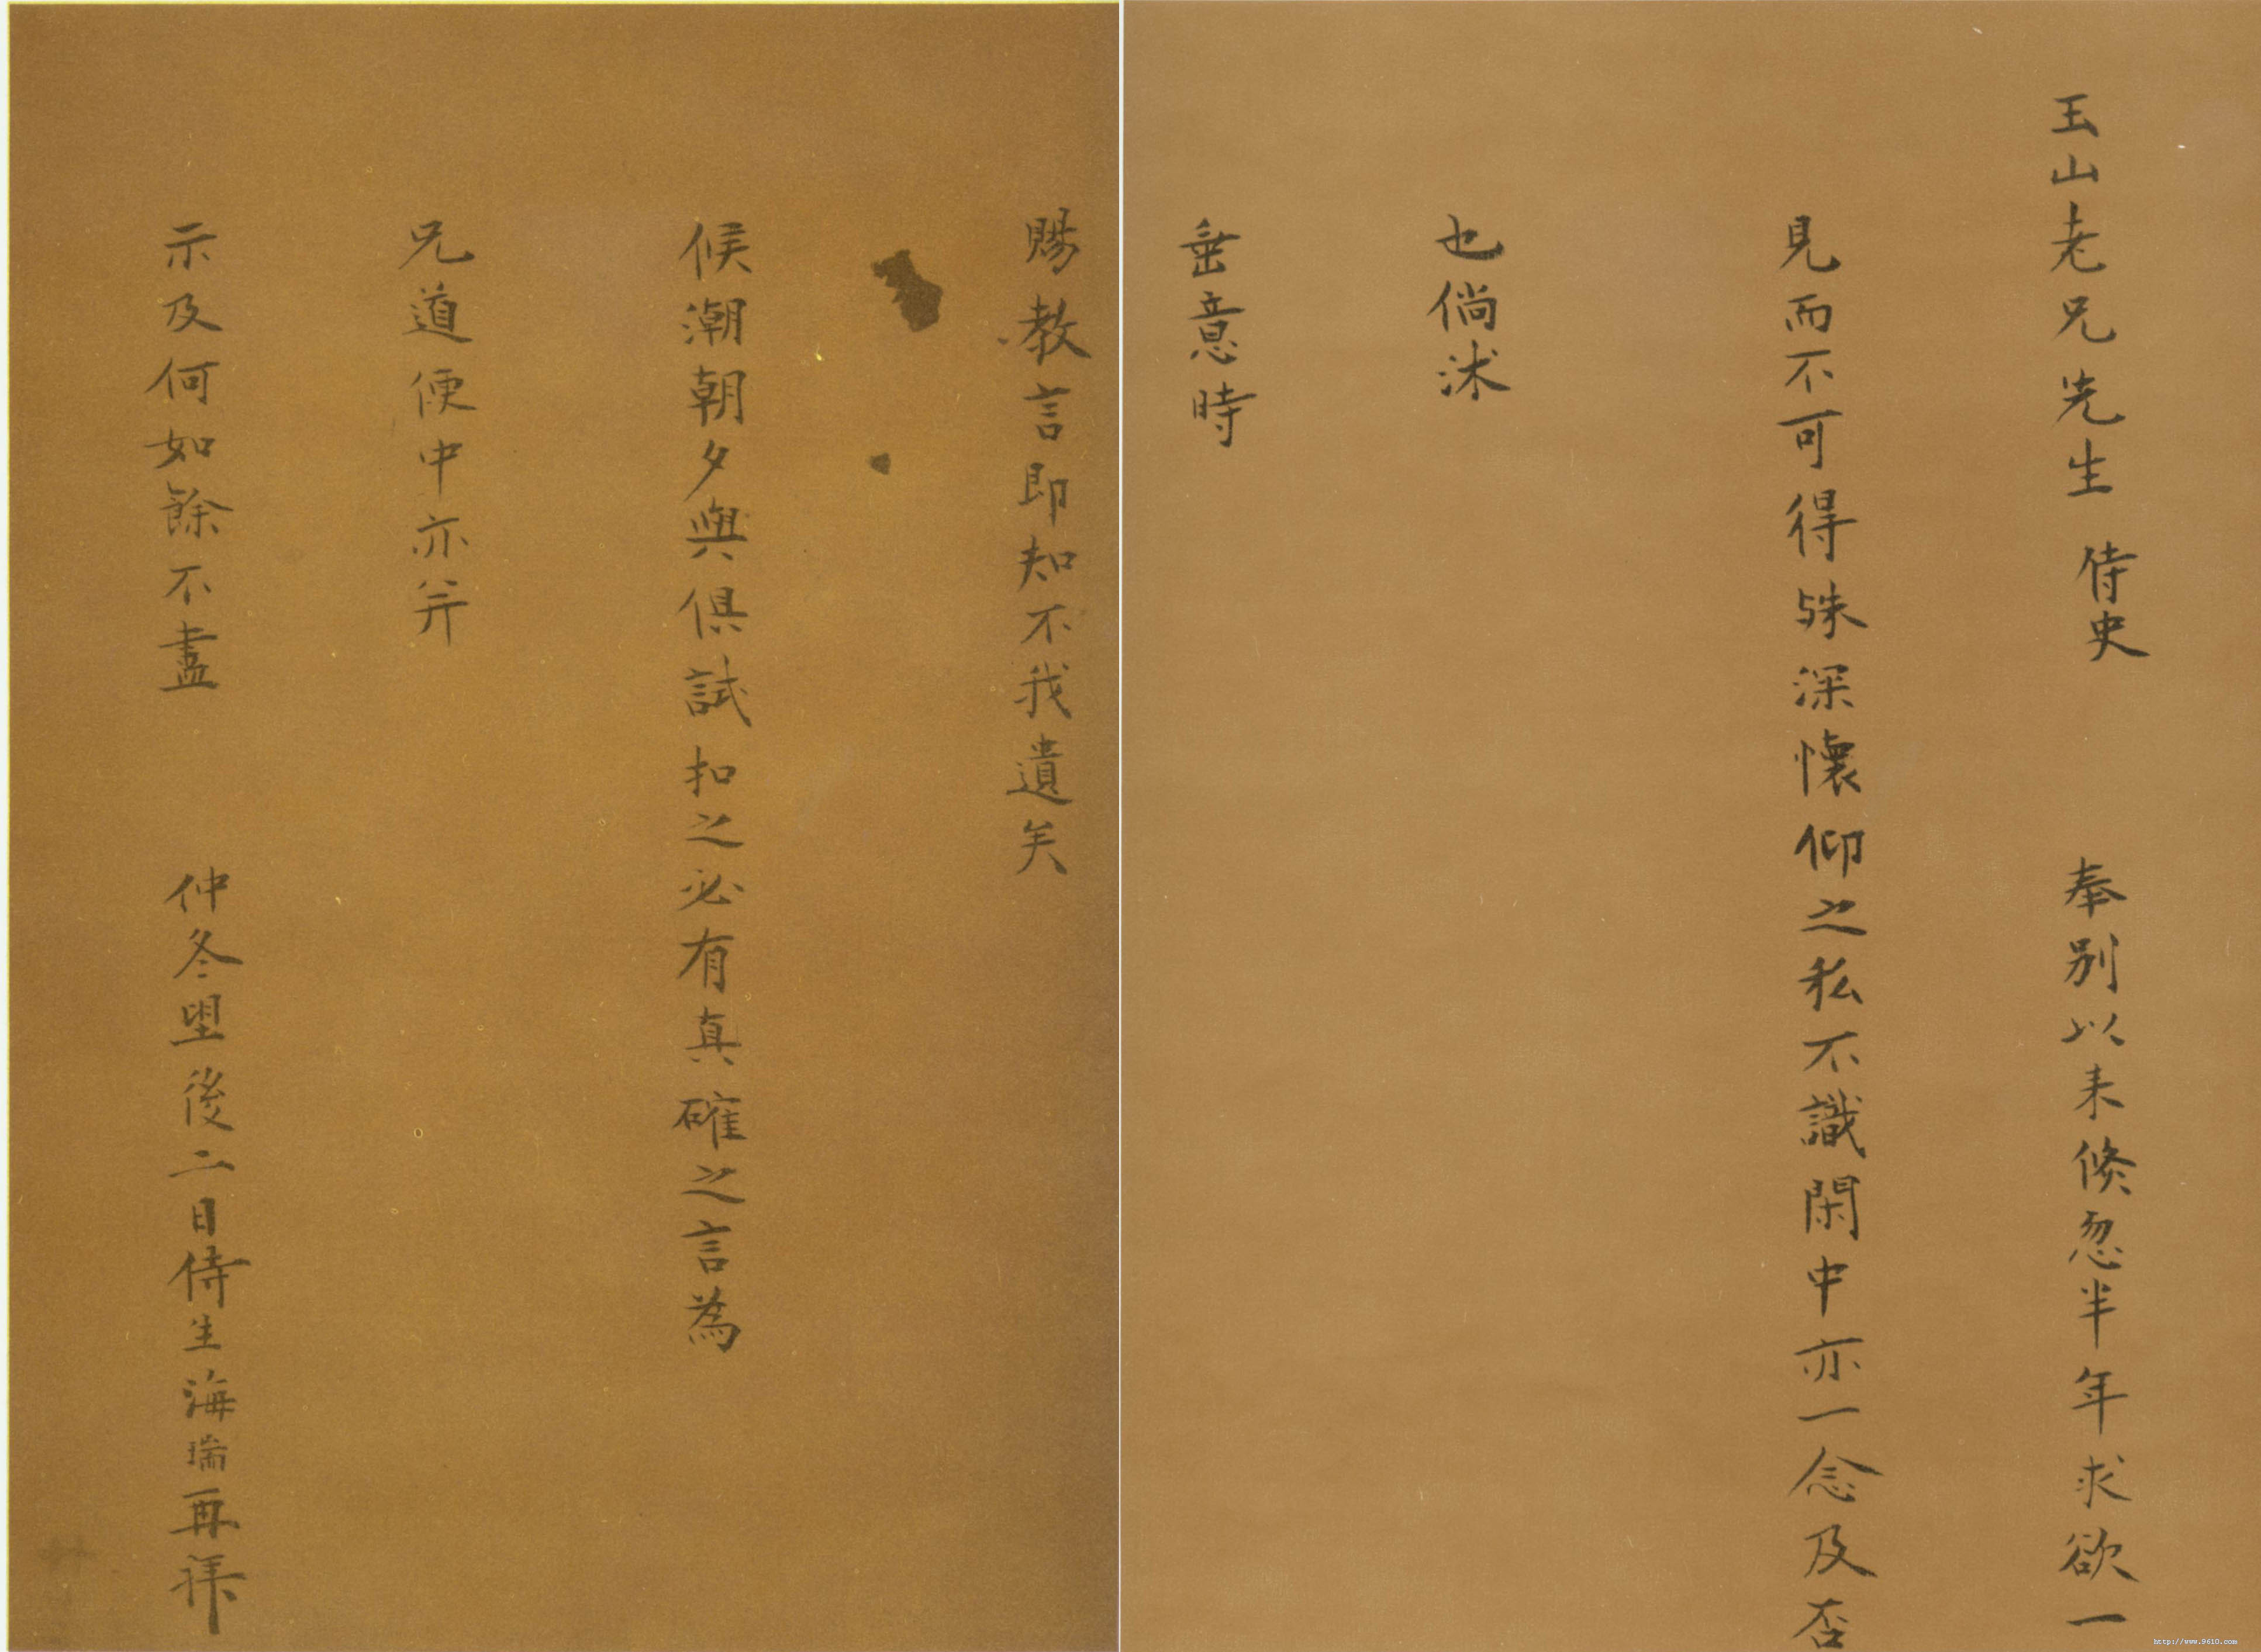 玉山老兄先生 侍史 奉別以来倐忽半年求欲一
見而不可得殊深懷仰之私不識閑中亦一念及否
也倘沭
垂意時
賜教言即知不我遺矣
候潮朝夕與俱試扣之必有真確之言為
兄道便中亦并
示及何如餘不盡 仲冬朢後二日侍生海瑞再拜
http://www.9610.com